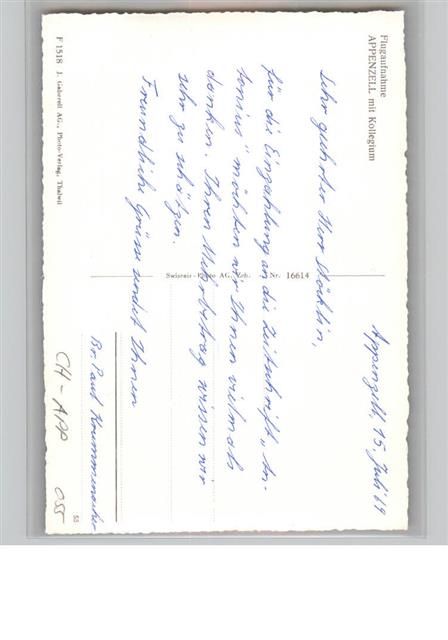 Flugaufnahme
APPENZELL mit Kollegium
Appenzell, 15. Juli 69
Sehr geehrter Herr Stöcklin,
für die Einzahlung an die Zeitschrift „An-
tonius" möchten wir Ihnen vielmals
danken. Ihren Mehrbetrag wissen wir
sehr zu schätzen.
Freundliche Grüsse sendet Ihnen
Br. Paul Krummenacher
Swissair-Photo AG. Zch. Nr. 16614
F 1518 J. Gaberell AG., Photo-Verlag, Thalwil
55
CH - APP 055